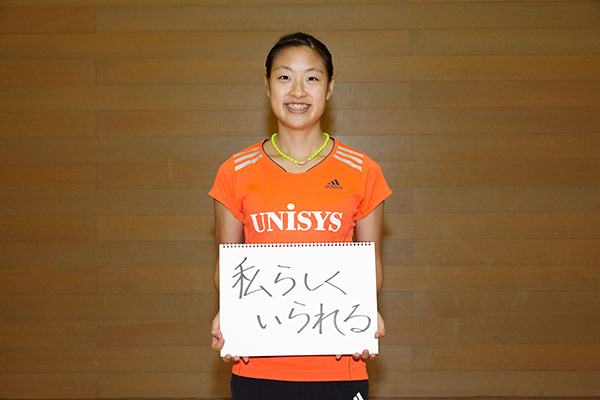 UNiSYS
私らしく
いられる